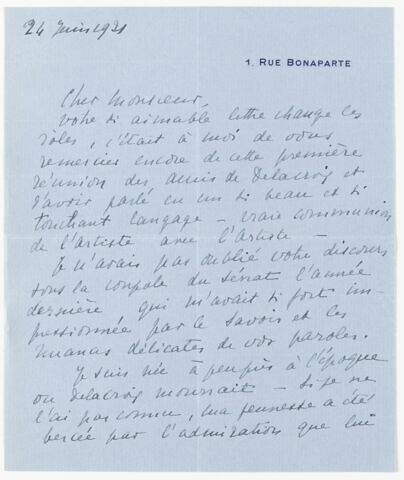 24 Juin 1931
1. RUE BONAPARTE
Cher Monsieur,
Votre si aimable lettre change les
rôles, c'était à moi de vous
remercier encore de cette première
réunion des amis de Delacroix et
d'avoir parlé en un si beau et si
touchant langage – vraie communion
de l'artiste avec l'artiste –
Je n'avais pas oublié votre discours
sous la coupole du Sénat l'année
dernière qui m'avait si fort im-
pressionnée par le savoir et les
nuances délicates de vos paroles.
Je suis née à peu près à l'époque
ou Delacroix mourrait – si je ne
l'ai pas connu, ma jeunesse a été
bercée par l'admiration que lui